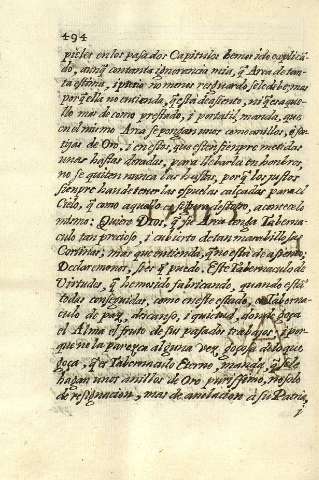 494
pieles en los pasados Capitulos hemos ido explicã-
do, aunq̃ contanta ignorancia mia, q̃ Arca de tan-
ta estima, i para no menos resguardo, se le debe; mas
porq̃ ella no entienda, q̃ està de asiento, ni q̃ era aque-
llo mas de como prestado, i portatil, manda, que
en el mismo Arca se pongan unos como anillos, q̃ sor-
tijas de Oro, i en estos, que estèn siempre metidas
unas hastas doradas, para llebarla en hombros,
no se quiten nunca las hastas, porq̃ los justos
siempre han de tener las espuelas calçadas para el
Cielo, q̃ como aquello es figura de esto, acontece lo
mismo: Quiere Dios, q̃ su Arca tenga Taberna-
culo tan precioso, i cubierto de tan marabillosas
Cortinas; mas que entienda, q̃ no està de asiento;
Declaremonos, si es q̃ puedo. Este Tabernaculo de
Virtudes, q̃ hemos ido fabricando, quando estàn
todas conseguidas, como en este estado, es Taberna-
culo de paz, descanso, i quietud, donde goza
el Alma el fruto de sus pasados trabajos; i por-
que no la parezca alguna vez, gozosa de lo que
goza, q̃ es Tabernaculo Eterno, manda, q̃ se le
hagan unos anillos de Oro purissimo, no solo
de resignacion, mas de anelacion à su Patria,
i